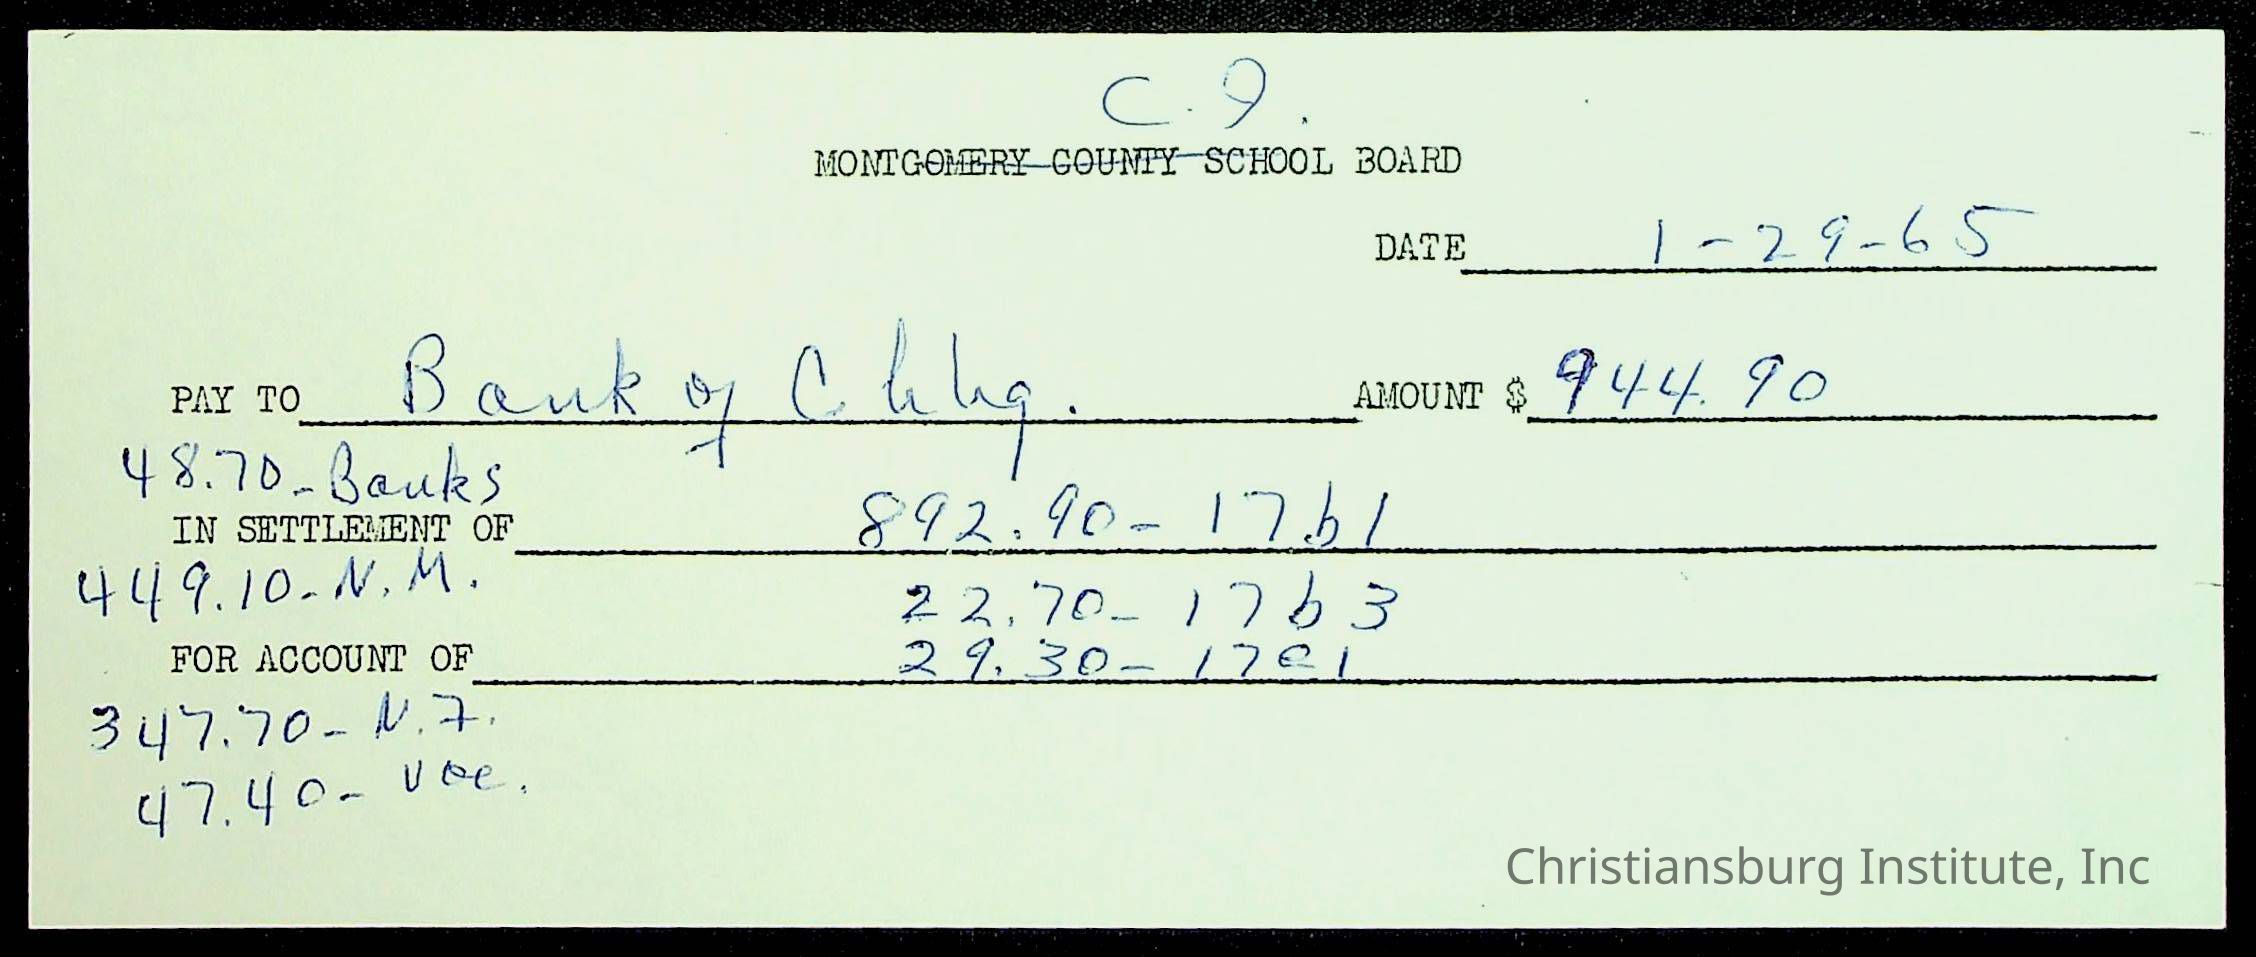 C. I.
MONTGOMERY COUNTY SCHOOL BOARD
DATE 1-29-65
PAY TO Bank of Chbg. AMOUNT $ 944.90
48.70-Banks
IN SETTLEMENT OF 892.90-17b1
449.10-N.M.
22.70-17b3
FOR ACCOUNT OF 29.30-17e1
347.70-N.F.
47.40-Voc.
Christiansburg Institute, Inc